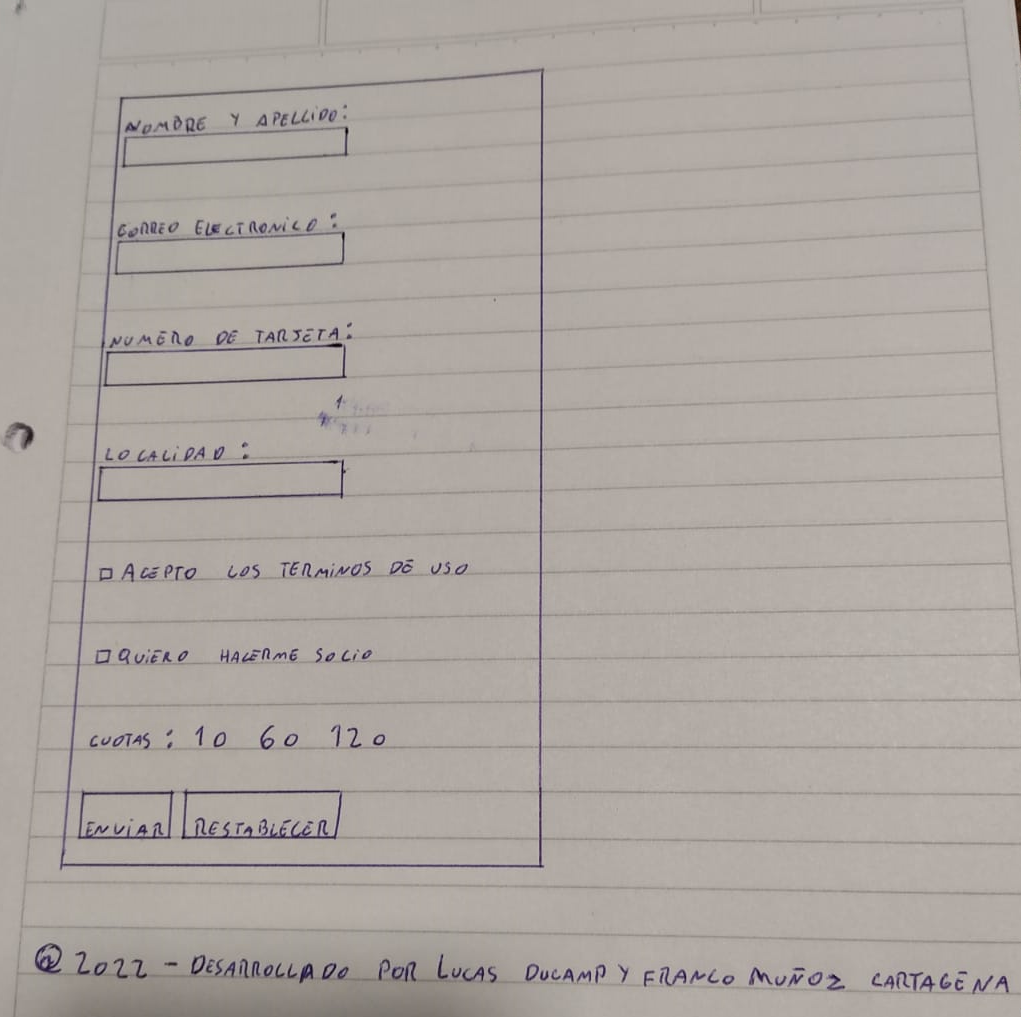 NOMBRE Y APELLIDO:
CORREO ELECTRONICO:
NUMERO DE TARJETA:
LOCALIDAD:
ACEPTO LOS TERMINOS DE USO
QUIERO HACERME SOCIO
CUOTAS: 10 60 120
ENVIAR RESTABLECER
@ 2022 - DESARROLLADO POR LUCAS DUCAMP Y FRANCO MUÑOZ CARTAGENA